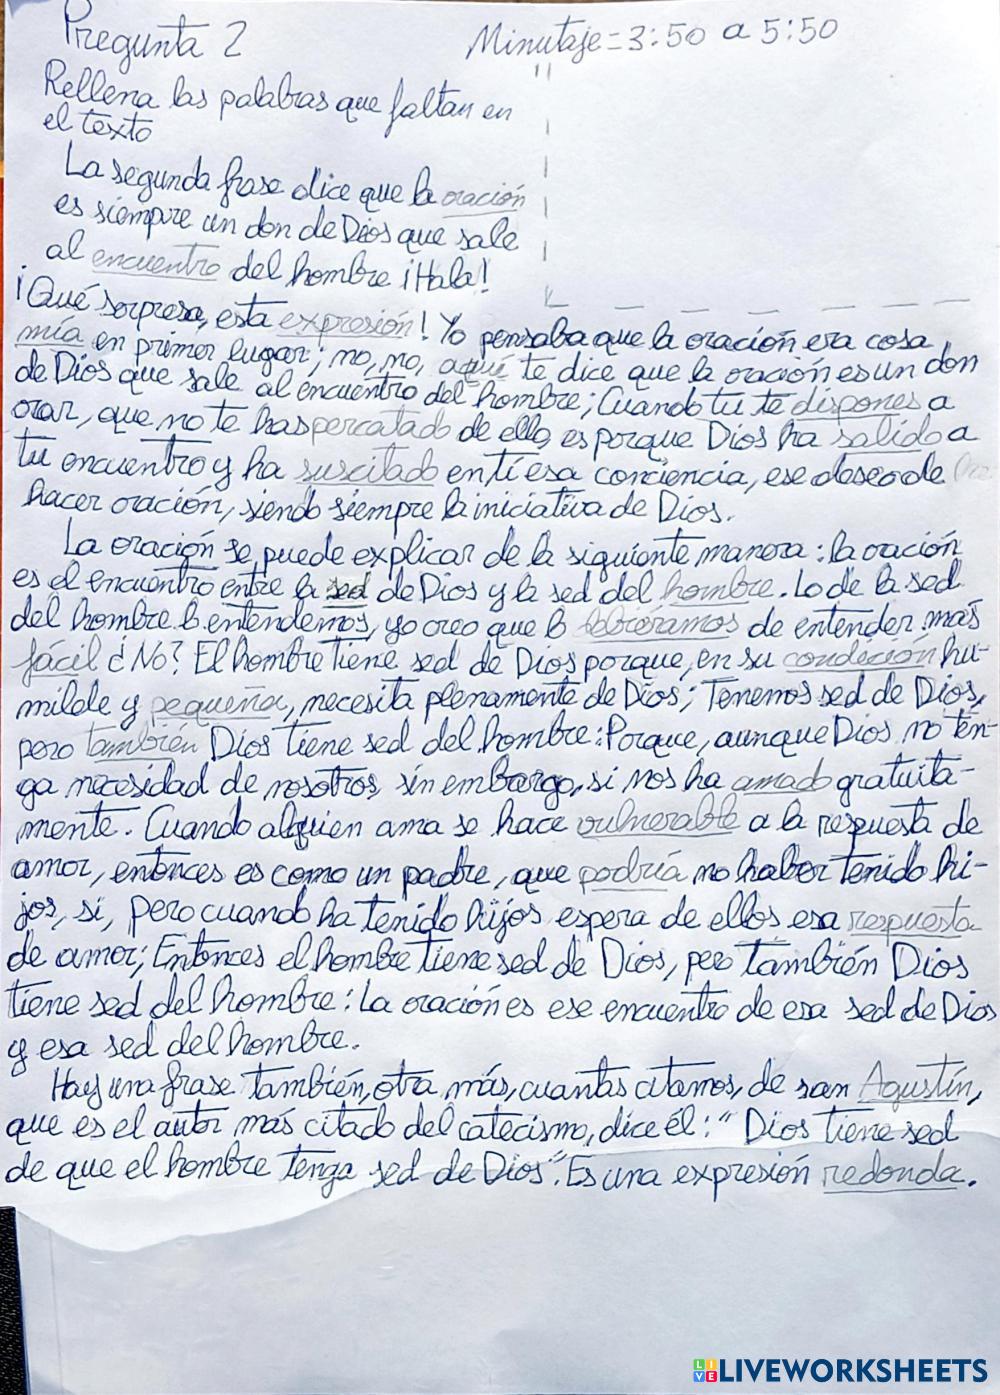 Pregunta 2
Minutaje = 3:50 a 5:50
Rellena las palabras que faltan en
el texto
La segunda frase dice que la oración
es siempre un don de Dios que sale
al encuentro del hombre ¡Hala!
¡Qué sorpresa, esta expresión! Yo pensaba que la oración era cosa
mía en primer lugar; no, no, aquí te dice que la oración es un don
de Dios que sale al encuentro del hombre; Cuando tu te dispones a
orar, que no te has percatado de ello, es porque Dios ha salido a
tu encuentro y ha suscitado en tí esa conciencia, ese deseo de
hacer oración, siendo siempre la iniciativa de Dios.
La oración se puede explicar de la siguiente manera: la oración
es el encuentro entre la sed de Dios y la sed del hombre. Lo de la sed
del hombre lo entendemos, yo creo que lo debiéramos de entender más
fácil ¿No? El hombre tiene sed de Dios porque, en su condición hu-
milde y pequeña, necesita plenamente de Dios; Tenemos sed de Dios,
pero también Dios tiene sed del hombre: Porque, aunque Dios no ten-
ga necesidad de nosotros, sin embargo, si nos ha amado gratuita-
mente. Cuando alguien ama se hace vulnerable a la respuesta de
amor, entonces es como un padre, que podría no haber tenido hi-
jos, si, pero cuando ha tenido hijos espera de ellos esa respuesta
de amor; Entonces el hombre tiene sed de Dios, pero también Dios
tiene sed del hombre: La oración es ese encuentro de esa sed de Dios
y esa sed del hombre.
Hay una frase también, otra más, cuantas citamos, de san Agustín,
que es el autor más citado del catecismo, dice él: "Dios tiene sed
de que el hombre tenga sed de Dios". Es una expresión redonda.
LIVEWORKSHEETS